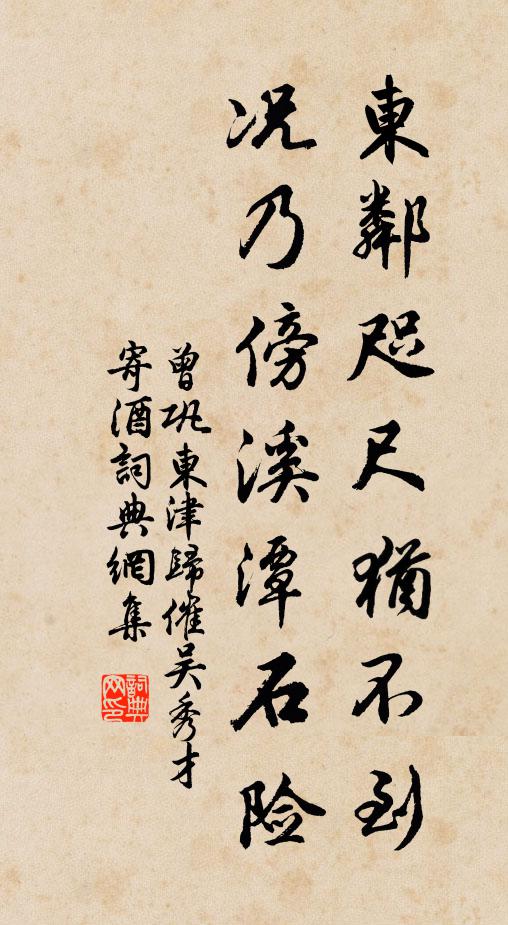 東鄰咫尺猶不到
况乃傍溪潭石险
曾巩東津歸催吴秀才
寄酒詞典網集
詞典网印